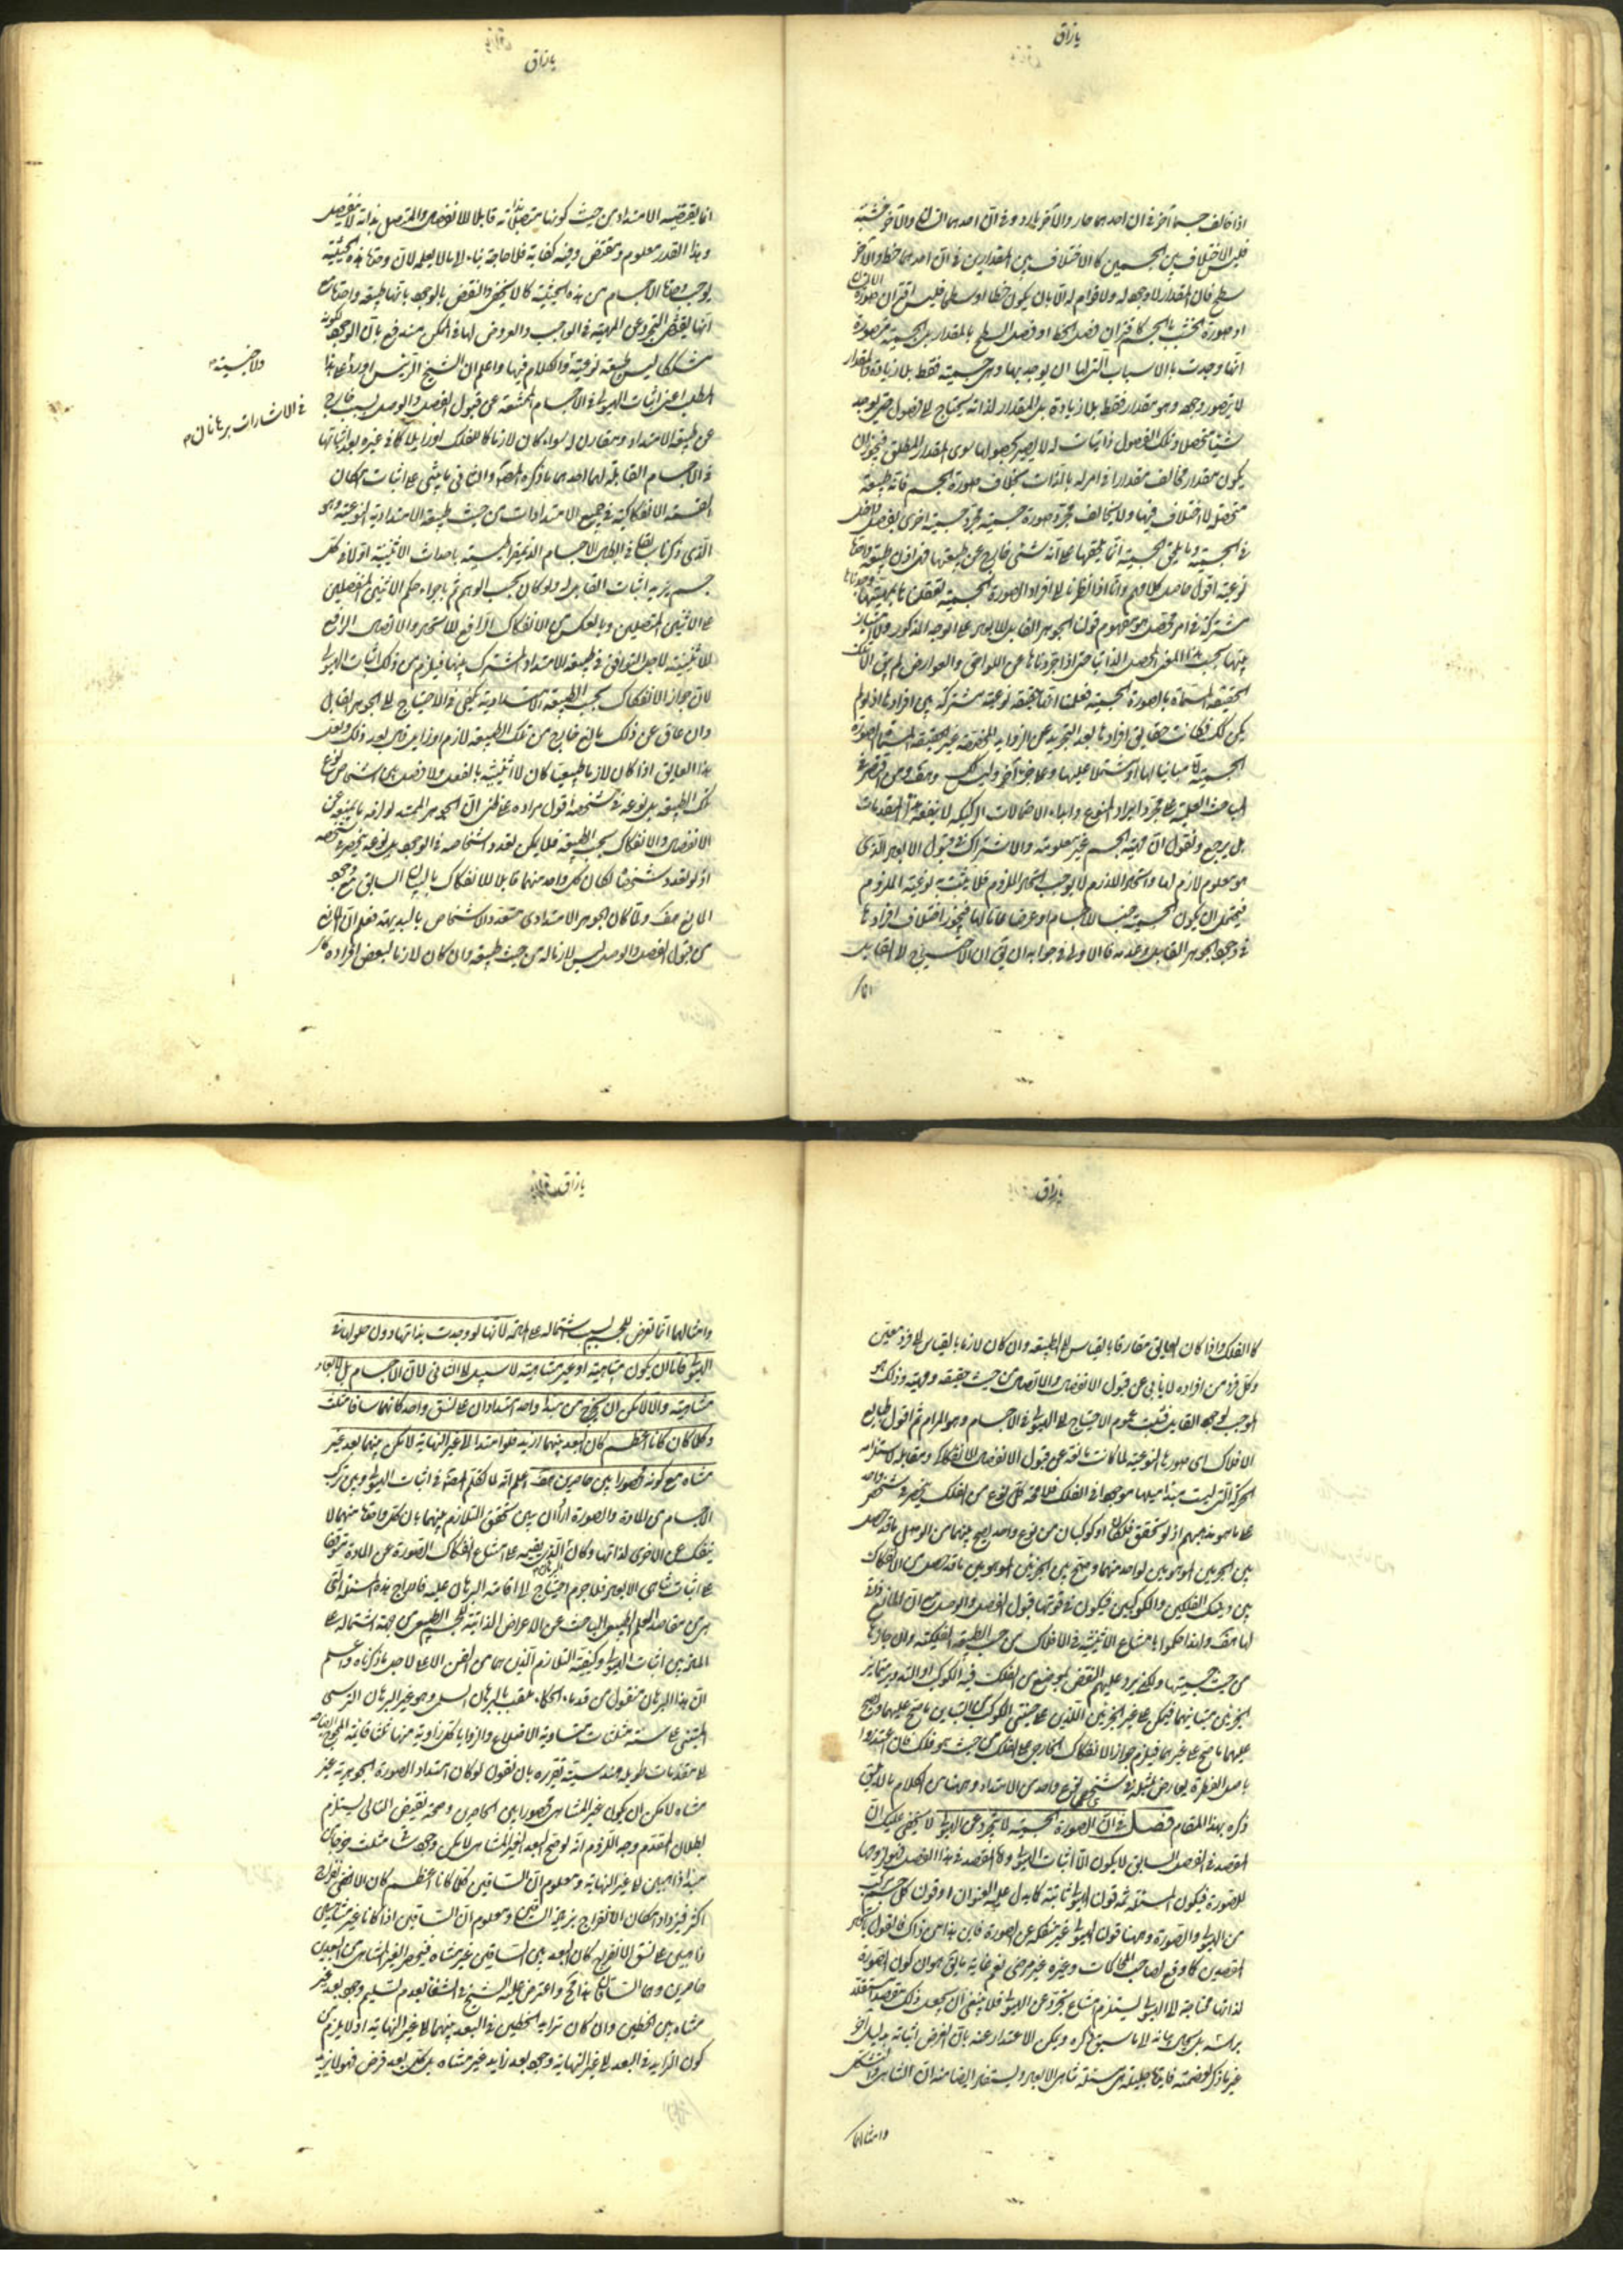 يارزاق
اذا خالف جسما آخر فى ان احدهما حار والآخر بارد وفى ان احدهما انسان والآخر خشبة
فليس الاختلاف بين الجسمين كالاختلاف بين المقدارين فى ان احدهما خط والآخر
سطح فان المقدار لا وجود له ولا قوام له الا بان يكون خطا او سطحا فليس اقتران صورة الانسان
او صورة الخشب بالجسم كاقتران فصل الخط او فصل السطح بالمقدار بل الجسمية متصورة
انها وجدت بالاسباب التى لها ان يوجد بها وهى جسمية فقط بلا زيادة والمقدار
لا يتصور وجوده وهو مقدار فقط بلا زيادة بل المقدار لذاته يحتاج الى فصول حتى يوجد
شيئا متحصلا وتلك الفصول ذاتيات له لا يصير بحصولها سوى المقدار المطلق فيجوز ان
يكون مقدار يخالف مقدارا فى امر له بالذات بخلاف صورة الجسم فانه طبيعة
متحصلة لا اختلاف فيها ولا يخالف مجرد صورة جسمية مجرد جسمية اخرى بفصل داخل
فى الجسمية وما يلحق الجسمية انما يلحقها على انه شىء خارج عن طبيعتها فهى اذن طبيعة واحدة
نوعية اقول حاصل كلامهم وانا اذا نظرنا الى افراد الصورة الجسمية تعقلنا ماهيتها وجدناها
مشتركة فى امر محصل هو مفهوم قولنا الجوهر القابل للابعاد على الوجه المذكور ولا امتياز
بينها بحسب هذا المعنى المحصل الذاتى حتى اذا جردناها عن اللواحق والعوارض لم يبق الا تلك
الحقيقة المسماة بالصورة الجسمية فعلمنا انها حقيقة نوعية مشتركة بين افرادها اذ لو لم
يكن كذلك فكانت حقايق افرادها بعد التجريد عن الزوايد المخصصة غير الحقيقة المسماة بالصورة
الجسمية اما مباينا لها او مشتملا عليها وعلى جزء آخر وليس كذلك ومن اقتصر فى
المباحث العلمية على مجرد ايراد المنوع وابداء الاحتمالات الركيكة لا ينفعه هذه المقدمات
بل يرجع ويقول ان ماهية الجسم غير معلومة والاشتراك فى قبول الابعاد الذى
هو معلوم لازم لها واتحاد اللازم لا يوجب اتحاد الملزوم فلا يثبت به نوعية الملزوم
فيحتمل ان يكون الجسمية جنسا للاجسام او عرضا عاما لها فيجوز اختلاف افرادها
فى وجود الجوهر القابل وعدمه فالاولى فى جوابه ان يقال ان الاحتياج الى القابل
انما
يارزاق
انما يقتضيه الامتداد من حيث كونها متصلا بذاته قابلا للانفصال والمتصل بذاته لا ينفصل
وهذا القدر معلوم ومقتض وفيه كفاية فلا حاجة بنا الى ما لا يعلم لان وحدة هذه الحيثية
يوجب احتياج الاجسام من هذه الحيثية كما لا يخفى والنقض بالوجود بانها طبيعة واحدة مع
انها يقتضى التجرد عن الماهية فى الواجب والعروض لها فى الممكن مندفع بان الوجود لكونه
مشككا ليس طبيعة نوعية ولا جنسية والكلام فيها واعلم ان الشيخ الرئيس اورد على هذا
المطلب اعنى اثبات الهيولى فى الاجسام الممتنعة عن قبول الفصل والوصل بسبب خارج
فى الاشارات برهانان
عن طبيعة الامتداد ومقارن له سواء كان لازما كما للفلك او زايلا كما فى غيره بعد اثباتها
فى الاجسام القابلة لهما احدهما ما ذكره المصنف والثانى ما يبتنى على اثبات امكان
القسمة الانفكاكية فى جميع الامتدادات من حيث طبيعة الامتدادية النوعية وهو
الذى ذكرنا سابقا فى ابطال الاجسام الذيمقراطيسية باحداث الاثنينية اولا فى كل
جسم يريد اثبات القابل له ولو كان بحسب الوهم ثم باجراء حكم الاثنين المنفصلين
على الاثنين المتصلين وبالعكس من الانفكاك الرافع للاتحاد والاتصال الرافع
للاثنينية لاجل التوافق فى طبيعة الامتداد المشترك بينها فيلزم من ذلك اثبات الهيولى
لان جواز الانفكاك بحسب الطبيعة الامتدادية يكفى فى الاحتياج الى الجوهر القابل
وان عاق عن ذلك مانع خارج عن تلك الطبيعة لازم او زايل
هذا العايق اذا كان لازما طبيعيا كان لا اثنينية بالفعل ولا فصل بين اشخاص نوع
تلك الطبيعة بل نوعه فى شخصه اقول مراده على ظنى ان الجوهر الممتد لو لزمه ما يمنعه عن
الانفصال والانفكاك بحسب الطبيعة فلا يمكن تعدد اشخاصه فى الوجود بل نوعه ينحصر فى شخصه
اذ لو تعدد شخصا لكان كل واحد منهما قابلا للانفكاك بالبيان السابق مع وجود
المانع هف ولما كان الجوهر الامتدادى متعدد الاشخاص بالبديهة فعلم ان المانع
من قبول الفصل والوصل ليس لازما له من حيث طبيعته وان كان لازما لبعض افراده
يارزاق
كالفلك واذا كان العايق مفارقا بالقياس الى الطبيعة وان كان لازما بالقياس الى فرد معين
وكل فرد من افراده لا يأبى عن قبول الانفصال والاتصال من حيث حقيقته وماهيته وذلك هو
الموجب لوجود القابل فثبت عموم الاحتياج الى الهيولى فى الاجسام وهو المرام ثم اقول طبايع
الافلاك اى صورها النوعية لما كانت مانعة عن قبول الانفصال الانفكاكى ومقابله
الحركة التى ليست مبدأ ميلها موجودا فى الفلك فلا محالة كل نوع من الفلك ينحصر فى شخص واحد
على ما هو مذهبهم اذ لو تحقق فلكان او كوكبان من نوع واحد لصح بينهما من الوصل ما قد حصل
بين الجزئين الموهومين لواحد منهما وصح بين الجزئين الموهومين ما قد حصل من الانفكاك
بين ذينك الفلكين والكوكبين فيكون فى قوتها قبول الفصل والوصل مع ان المانع لازم
لها هف ولهذا حكموا بامتناع الاثنينية فى الافلاك من حيث الطبيعة الفلكية وان جاز لها
من حيث جسميتها ولكن يرد عليهم النقض بموضع من الفلك فيه الكوكب او التدوير
فيمكن على غير الجزئين اللذين على جنبتى الكوكب من التباين ما صح عليهما وصح
عليهما ما صح على غيرهما فيلزم جواز الانفكاك الخارجى على الفلك من حيث هو فلك
ذكره بهذا المقام فصل فى ان الصورة الجسمية لا تتجرد عن الهيولى لا يخفى عليك ان
المقصد فى الفصل السابق لا يكون الا اثبات الهيولى واما المقصد فى هذا الفصل
للصورة فيكون المسئلة ثمه قولنا الهيولى ثابتة كما يدل عليه العنوان او قولنا كل جسم مركب
من الهيولى والصورة وههنا قولنا الهيولى غير منفكة عن الصورة فاين هذا من ذاك فالقول
المقصدين كما وقع لصاحب المحاكمات وغيره غير مرضى نعم غاية ما يقال هو ان كون الصورة
لذاتها محتاجة الى الهيولى يستلزم امتناع تجردها عن الهيولى فلا ينبغى ان يجعل ذلك مقصدا مستقلا
ويمكن الاعتذار عنه بان الغرض اثباته بدليل آخر
وامثالها
يارزاق
وامثالها انما تعرض للجسم بسبب اشتماله على المادة لانها لو وجدت بذاتها دون حلولها فى
الهيولى فاما ان يكون متناهية او غير متناهية لا سبيل الى الثانى لان الاجسام بل الابعاد
متناهية والا لامكن ان يخرج من مبدأ واحد امتدادان على نسق واحد كانهما ساقا مثلث
وكلما كانا اعظم كان البعد بينهما ازيد فلو امتدا الى غير النهاية لامكن بينهما بعد غير
متناه مع كونه محصورا بين حاصرين هف اعلم انه لما تكلم المصنف فى اثبات الهيولى وبين تركب
الاجسام من المادة والصورة اراد ان يبين تحقق التلازم بينهما بان كل واحدة منهما لا
ينفك عن الاخرى لذاتها وكان البرهان الذى يقيمه على امتناع انفكاك الصورة عن المادة متوقفا
على اثبات تناهى الابعاد فلا جرم احتاج الى اقامة البرهان عليه فادراج هذه المسئلة التى
هى من مقاصد العلم الطبيعى الباحث عن الاعراض الذاتية للجسم الطبيعى من جهة اشتماله على
المادة بين اثبات الهيولى وكيفية التلازم الذين هما من الفن الاعلى لاجل ما ذكرناه واعلم
ان هذا البرهان منقول من قدماء الحكماء ملقب بالبرهان السلمى وهو غير البرهان الترسى
المبتنى على ستة مثلثات متساوية الاضلاع والزوايا كل زاوية منها ثلثا قائمة المحتاج
الى مقدمات طويلة هندسية تقريره بان نقول لو كان امتداد الصورة الجوهرية غير
متناه لامكن ان يكون غير المتناهى محصورا بين الحاصرين وصحة نقيض التالى يستلزم
بطلان المقدم وجه اللزوم انه لو صح البعد الغير المتناهى لامكن وجود ساقا مثلث خرجا من
مبدأ ذاهبين الى غير النهاية ومعلوم ان الساقين كلما كانا اعظم كان الانفراج
اكثر فيزداد امكان الانفراج بتزايد الساقين ومعلوم ان الساقين اذا كانا غير متناهيين
ذاهبين على نسق الانفراج كان البعد بين الساقين غير متناه فينحصر الغير المتناهى بين
حاصرين وهما الساقان هذا مح واعترض عليه الشيخ فى الشفا بعدم تسليم وجود بعد غير
متناه بين الخطين وان كان تزايد الخطين فى البعد بينهما الى غير النهاية اذ لا يلزم من
كون التزايد فى البعد الى غير النهاية وجود بعد زايد غير متناه بل كل بعد فرض فهو لا يزيد